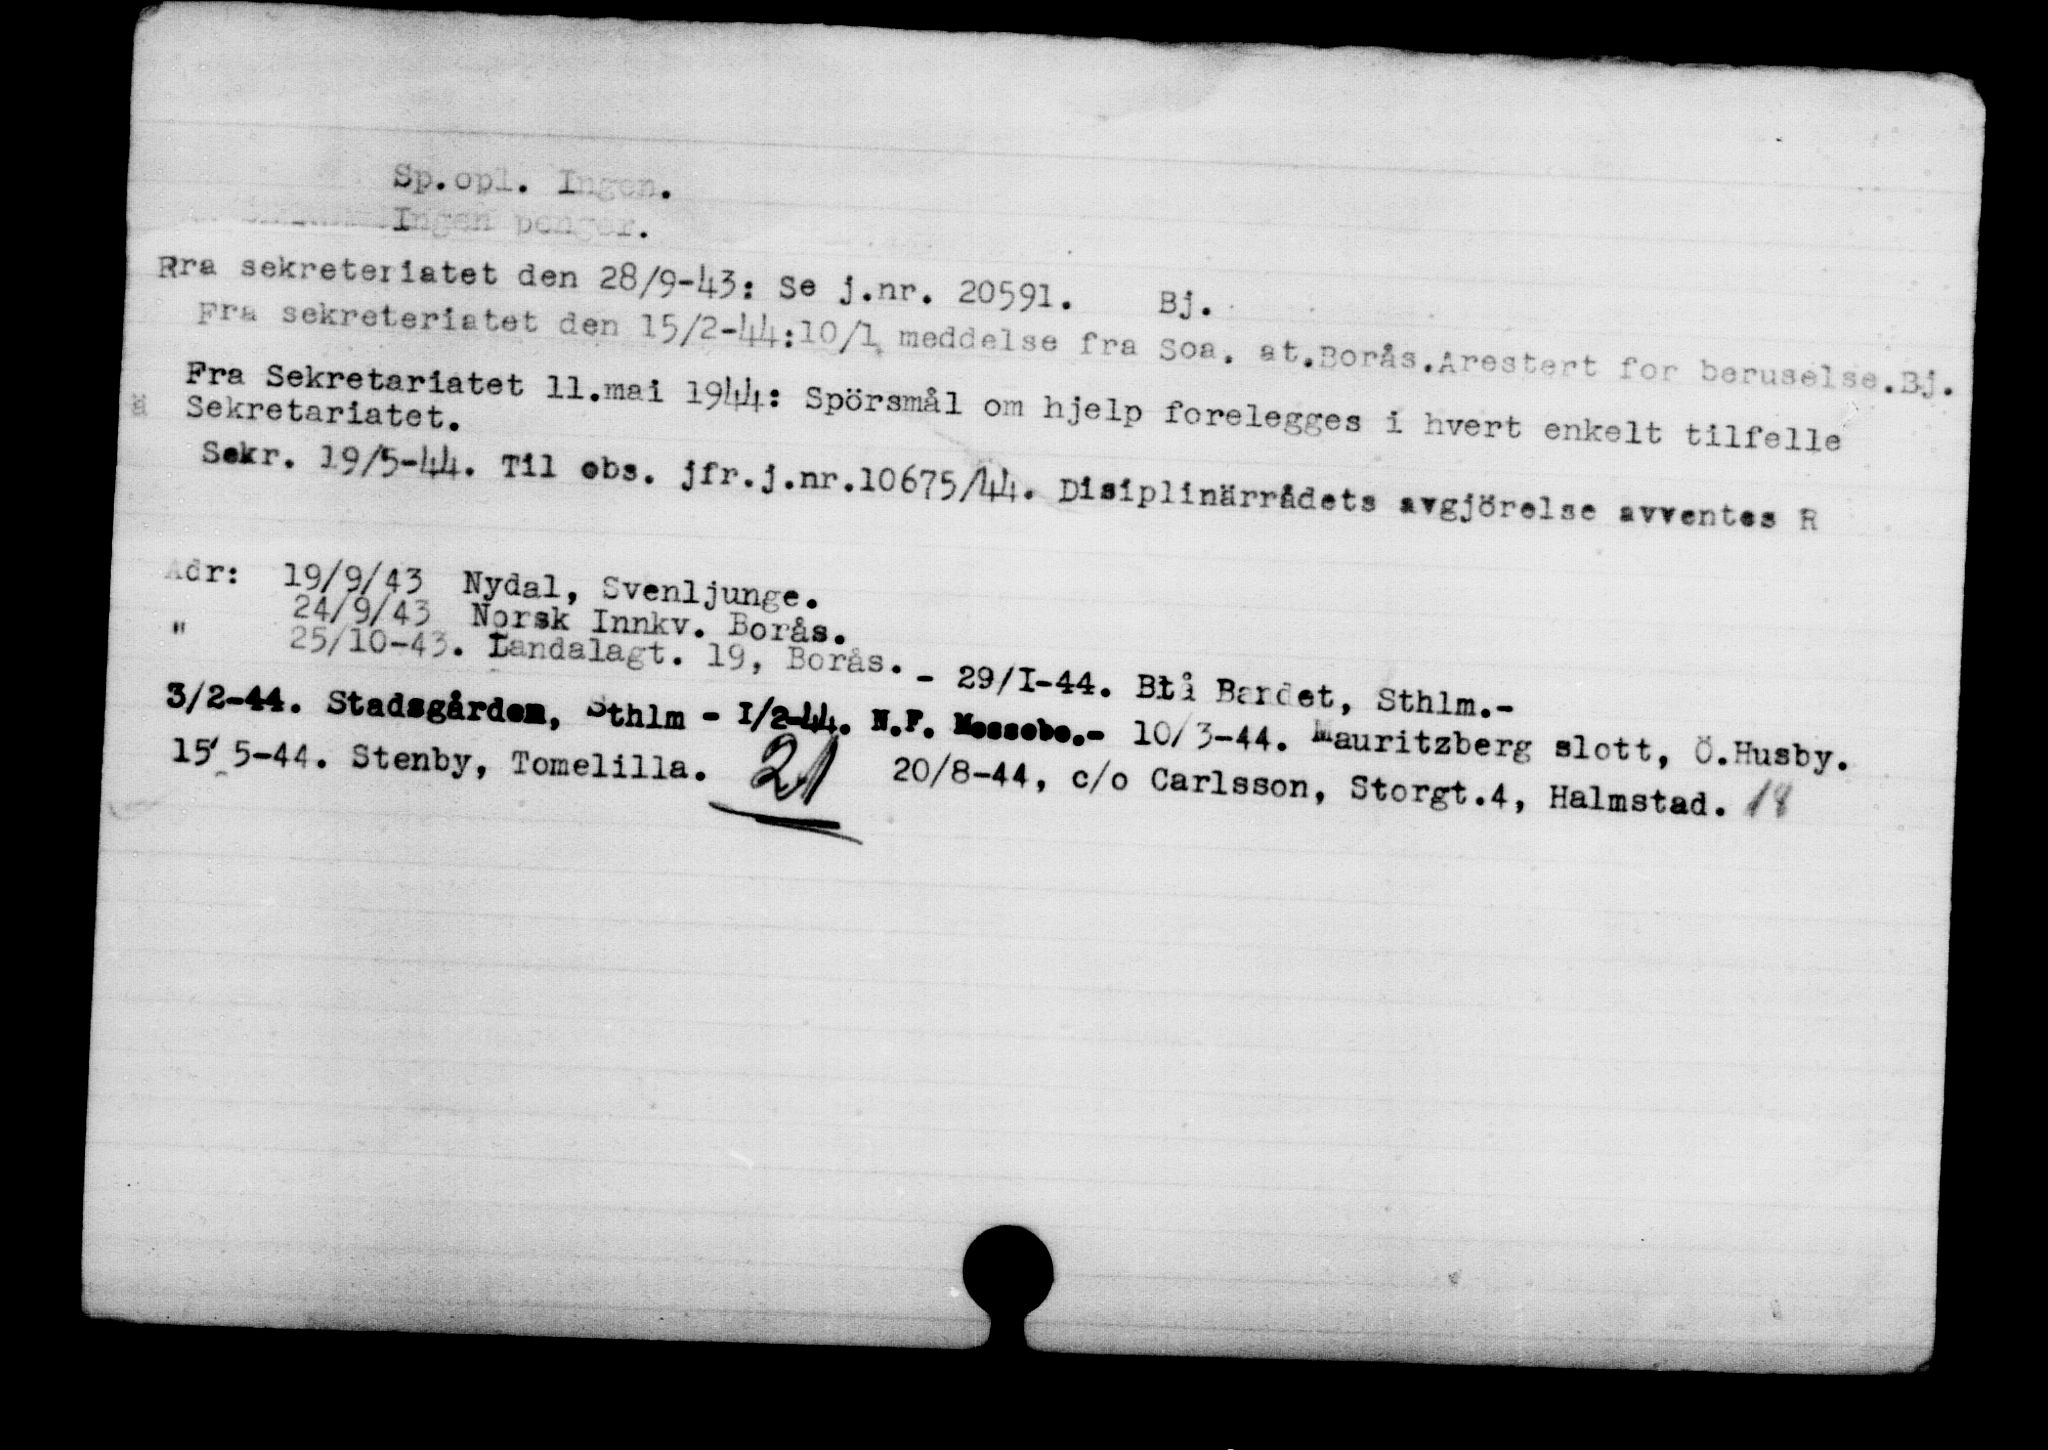 Sp.opl. Ingen.
Ingen penger.
Fra sekreteriatet den 28/9-43: Se j.nr. 20591. Bj.
Fra sekreteriatet den 15/2-44:10/1 meddelse fra Soa. at.Borås.Arestert for beruselse.Bj.
Fra Sekretariatet 11.mai 1944: Spörsmål om hjelp forelegges i hvert enkelt tilfelle
ä Sekretariatet.
Sekr. 19/5-44. Til obs. jfr.j.nr.10675/44. Disiplinärrådets avgjörelse avventes R
Adr: 19/9/43 Nydal, Svenljunge.
24/9/43 Norsk Innkv. Borås.
" 25/10-43. Landalagt. 19, Borås. - 29/I-44. Blå Bandet, Sthlm.-
3/2-44. Stadsgården, Sthlm - I/2-44. N.F. Mossebo.- 10/3-44. Mauritzberg slott, Ö.Husby.
15/5-44. Stenby, Tomelilla. 21 20/8-44, c/o Carlsson, Storgt.4, Halmstad. 18